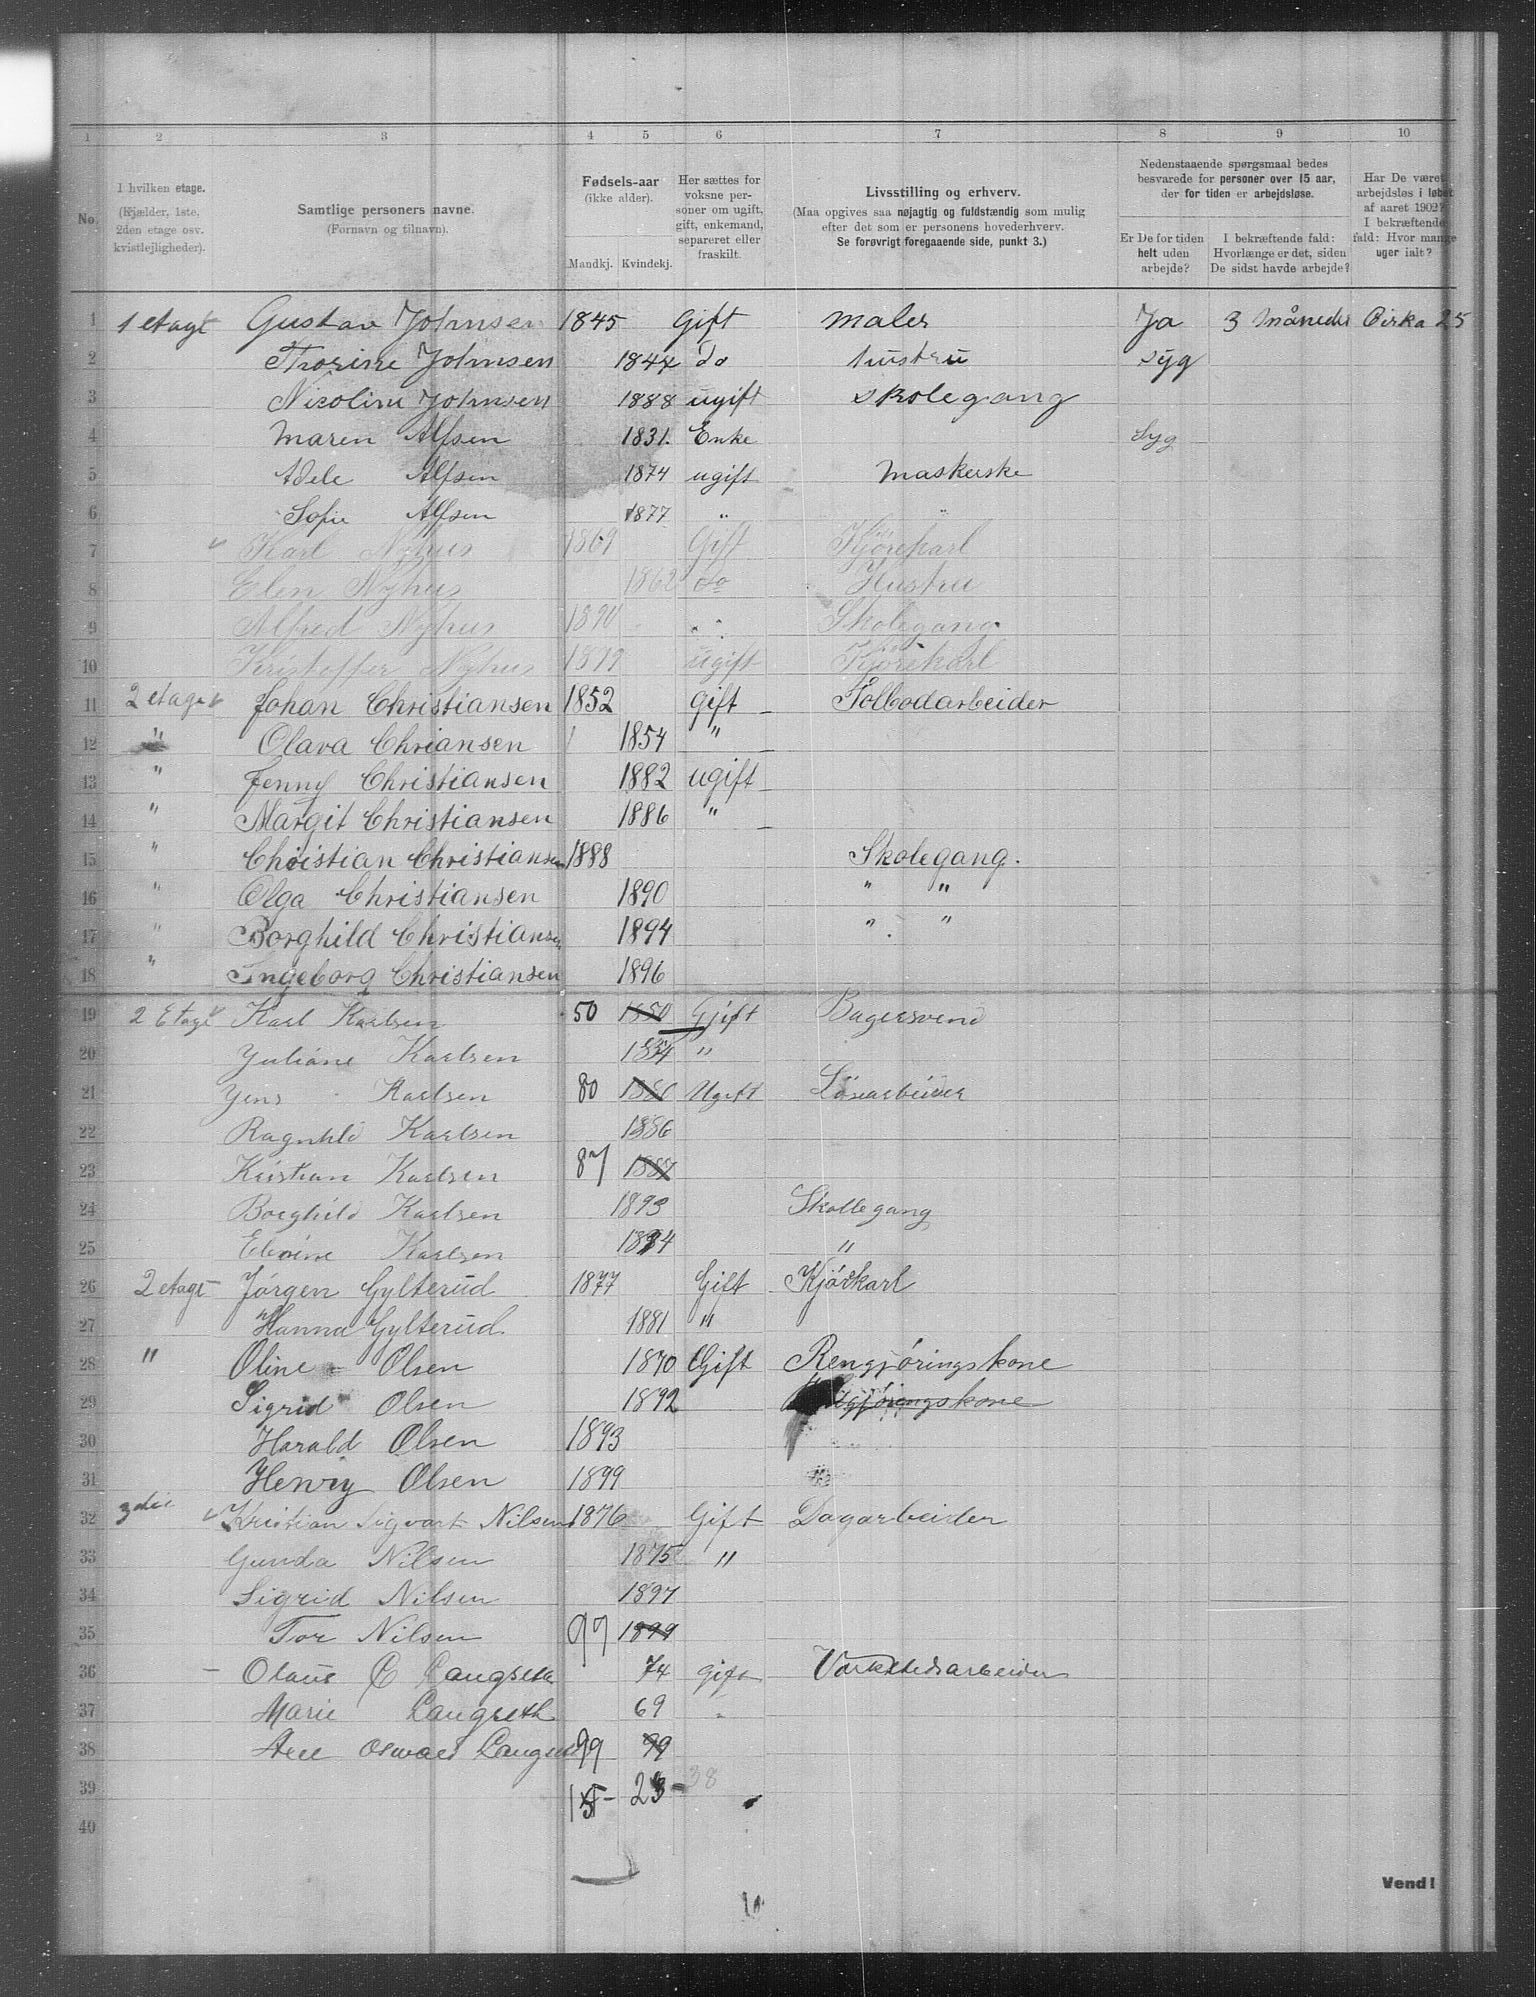 1 2 3 4 5 6 7 8 9 10
No.
I hvilken etage. (Kjælder, 1ste, 2den etage osv. kvistlejligheder).
Samtlige personers navne. (Fornavn og tilnavn).
Fødsels-aar (ikke alder). Mandkj. Kvindekj.
Her sættes for voksne personer om ugift, gift, enkemand, separeret eller fraskilt.
Livsstilling og erhverv. (Maa opgives saa nøjagtig og fuldstændig som mulig efter det som er personens hovederhverv. Se forøvrigt foregaaende side, punkt 3.)
Nedenstaaende spørgsmaal bedes besvarede for personer over 15 aar, der for tiden er arbejdsløse.
Er De for tiden helt uden arbejde?
I bekræftende fald: Hvorlænge er det, siden De sidst havde arbejde?
Har De været arbejdsløs i løbet af aaret 1902? I bekræftende fald: Hvor mange uger ialt?
1 1 etage Gustav Johnsen 1845 Gift maler Ja 3 måneder Cirka 25
2 Thorine Johnsen 1847 do hustru syg
3 Nicoline Johnsen 1888 ugift skolegang
4 Maren Alfsen 1831. Enke Syg
5 Adele Alfsen 1874 ugift
6 Sofie Alfsen 1877 " "
7 Karl Nyhus 1869 Gift Kjørekarl
8 Elen Nyhus 1862 do Hustru
9 Alfred Nyhus 1890 " Skolegang
10 Kristoffer Nyhus ugift Kjørekarl
11 2 etage Johan Christiansen 1852 gift Tolbodarbeider
12 " Olava Chriansen 1854 "
13 " Jenny Christiansen 1882 ugift
14 " Margit Christiansen 1886 "
15 " Christian Christiansen 1888 Skolegang.
16 " Olga Christiansen 1890 " "
17 " Borghild Christiansen 1894 " "
18 " Ingeborg Christiansen 1896
19 2 Etage Karl Karlsen 50 1850 Gift Bagersvend
20 Juliane Karlsen 1854 "
21 Jens Karlsen 80 1880 Ugift Løsarbeider
22 Ragnhild Karlsen 1886
23 Kristian Karlsen 87 1887
24 Borghild Karlsen 1893 Skollegang
25 Karlsen 1894 "
26 2 etage Jørgen Gylterud 1877 Gift Kjørkarl
27 Hanna Gylterud. 1881 "
28 " Oline Olsen 1870 Gift Rengjøringskone
29 Sigrid Olsen 1892 Rengjøringskone
30 Harald Olsen 1893
31 Henry Olsen 1899
32 3die Kristian Sigvart Nilsen 1876 Gift Dagarbeider
33 Gunda Nilsen 1875 "
34 Sigrid Nilsen 1897
35 Tor Nilsen 99 1899
36 Olaus C Langseth 74 gift Værkstedsarbeider
37 Marie Langseth 69 "
38 Langseth 99 99
39 15 - 23 - 38
40
Vend!